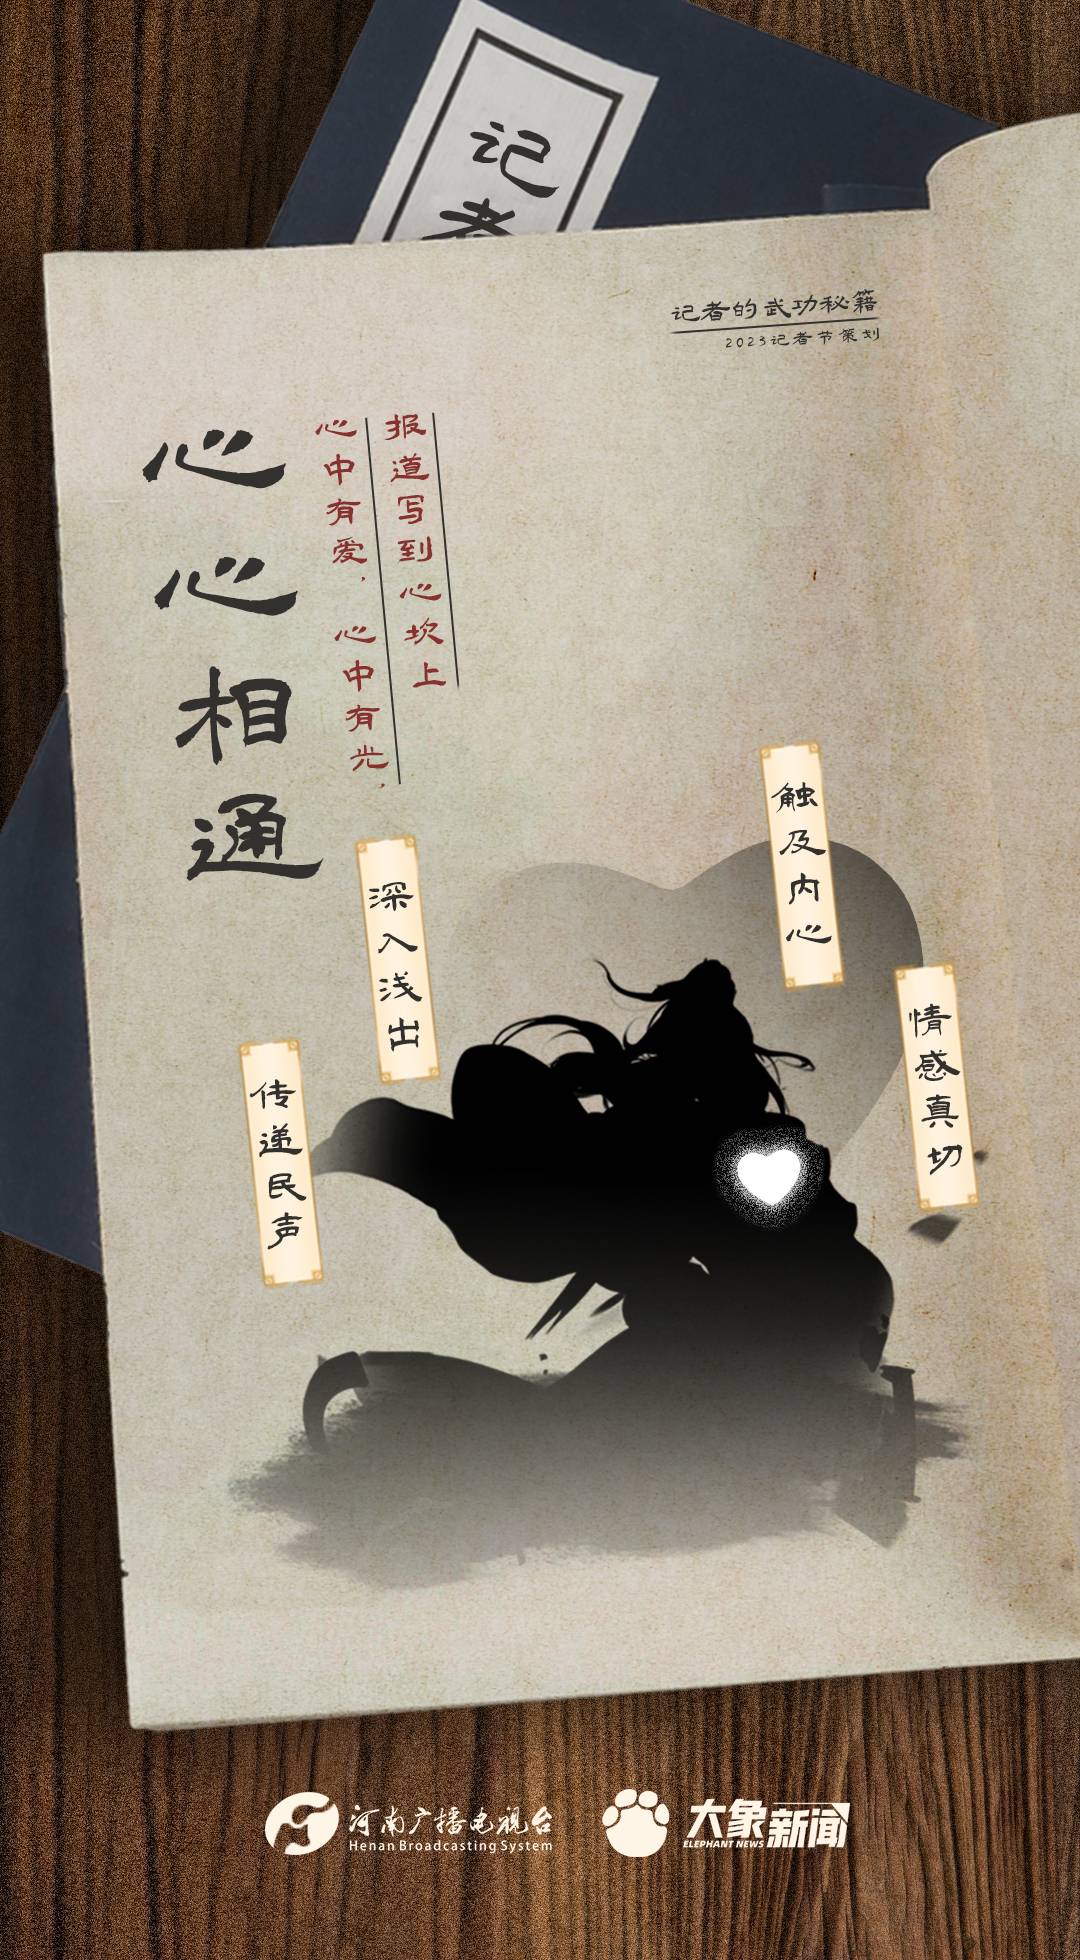 记者
记者的武功秘籍
2023记者节策划
心心相通
心中有爱，心中有光，
报道写到心坎上
触及内心
深入浅出
情感真切
传递民声
河南广播电视台
Henan Broadcasting System
大象新闻
ELEPHANT NEWS